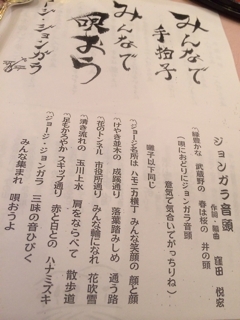 ジョンガラ音頭
作詞・編曲 窪田 悦宏
緑豊かな 武蔵野の 春は桜の 井の頭
(唄におどりにジョンガラ音頭
意気で気合いでがっちりね)
囃子以下同じ
ジョージ名所は ハモニカ横丁 みんな笑顔の 顔と顔
けやき並木の 成蹊通り 落葉踏みしめ 通う路
花のトンネル 市役所通り みんな輪になれ 花吹雪
清き流れの 玉川上水 肩をならべて 散歩道
足毛かろやか スキップ通り 赤と白との ハナミズキ
ジョージ・ジョンガラ 三味の音ひびく
みんな集まれ 唄おうよ
みんなで
手拍子
みんなで
唄おう
ジョンガラ